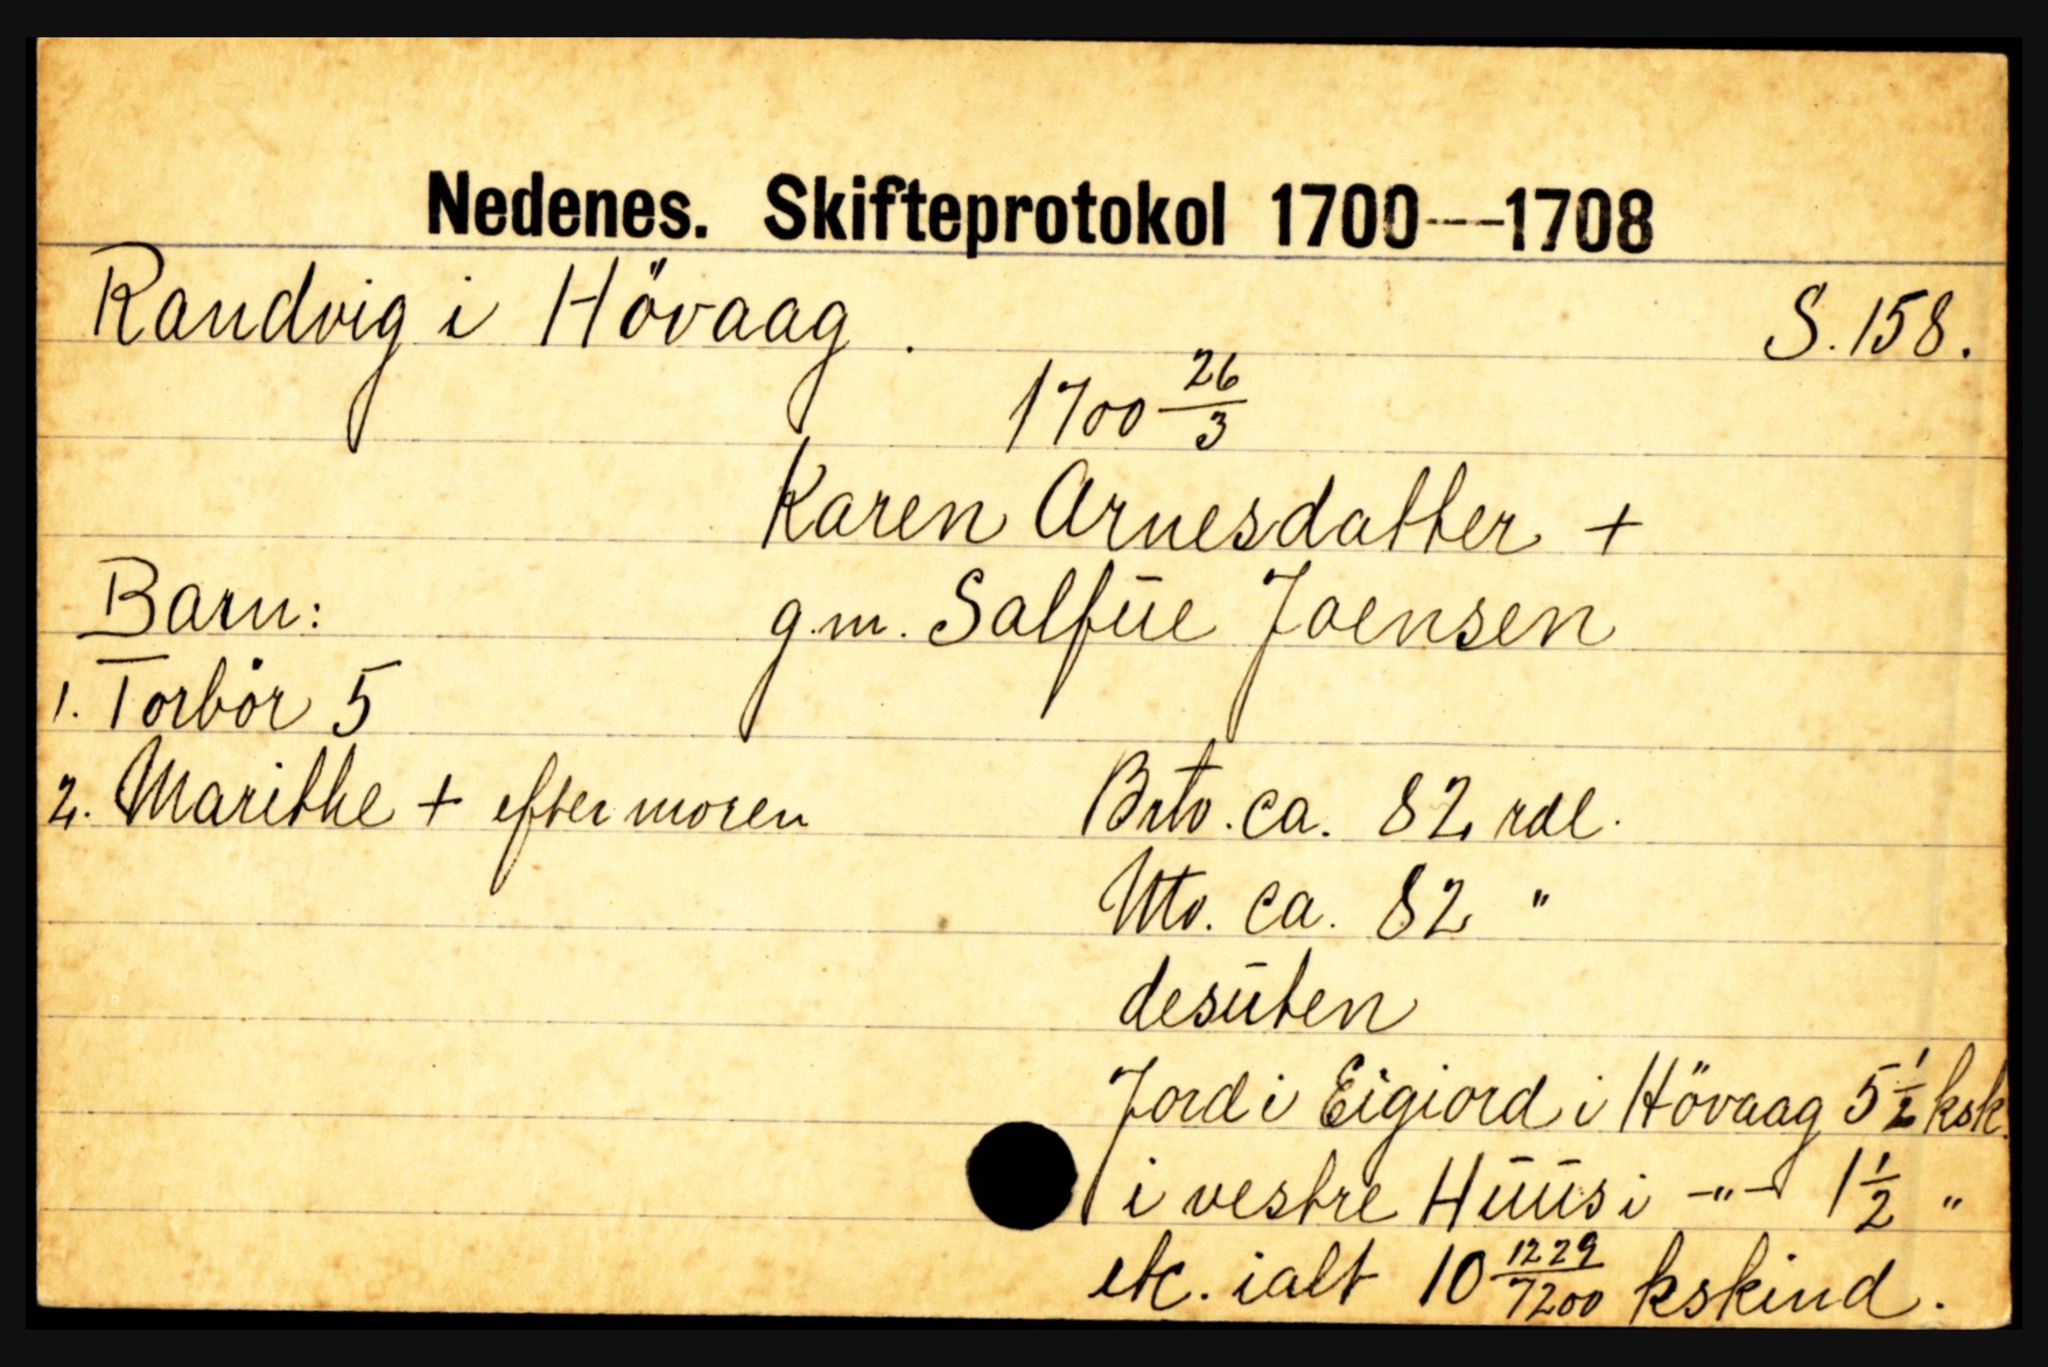 Nedenes. Skifteprotokol 1700—1708
Randvig i Hövaag. S. 158.
1700 26/3
Karen Arnesdatter +
g.m. Salfūe Joensen
Barn:
1. Torbör 5
2. Marithe + efter moren
Brto. ca. 82 rdl.
Nto. ca. 82 "
desūten
Jord i Eigiord i Hövaag 5 1/2 ksk.
i vestre Hūūs i -"- 1 1/2 "
etc. ialt 10 1229/7200 kskind.